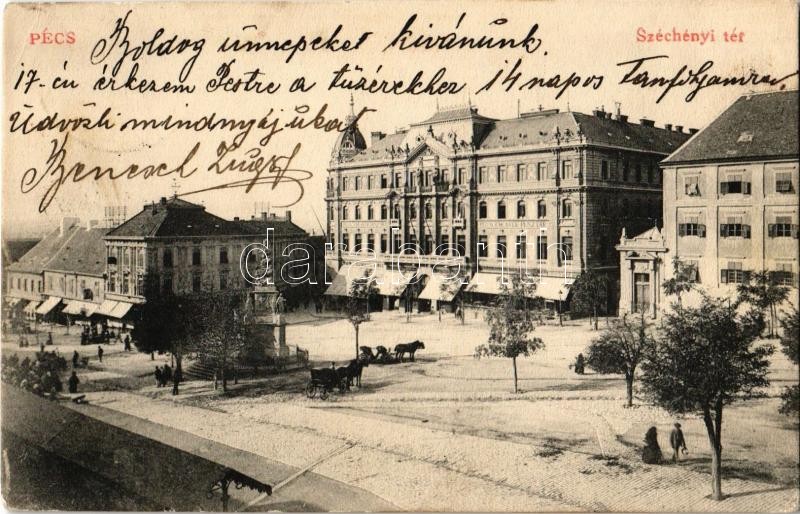 PÉCS
Széchényi tér
Boldog ünnepeket kivánunk.
17-én érkezem Pestre a tüzérekhez 14 napos
Üdvözli mindnyájukat
Benesch
darabanth